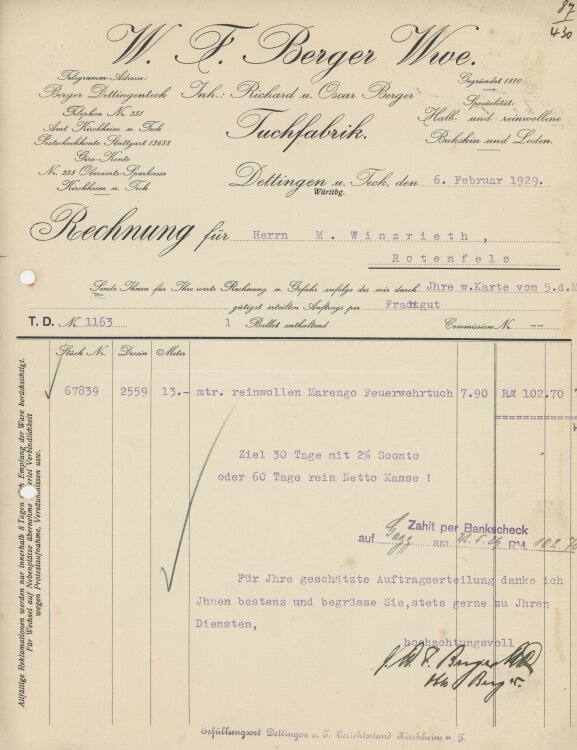 87
430
W. F. Berger Wwe.
Telegramm-Adresse:
Berger Dettingenteck
Telephon Nr. 351
Amt Kirchheim u. Teck
Postscheckkonto Stuttgart 13688
Giro-Konto
Nr. 258 Oberamts-Sparkasse
Kirchheim u. Teck
Inh.: Richard u. Oscar Berger
Tuchfabrik.
Gegründet 1870
Spezialität:
Halb- und reinwollene
Bukskin und Loden.
Dettingen u. Teck, den 6. Februar 1929.
Württbg.
Rechnung für Herrn M. Winzrieth,
Rotenfels
Sende Ihnen für Ihre werte Rechnung u. Gefahr zufolge des mir durch Jhre w.Karte vom 5.d.M
gütigst erteilten Auftrags per Frachtgut
T. D. Nr. 1163 1 Ballot enthaltend Commission Nr. --
Stück Nr. Dessin Meter
67839 2559 13.- mtr. reinwollen Marengo Feuerwehrtuch 7.90 RM 102.70
Ziel 30 Tage mit 2% Sconto
oder 60 Tage rein Netto Kasse !
Zahlt per Bankscheck
auf Gagg. am RM 102.70
Für Jhre geschätzte Auftragserteilung danke ich
Jhnen bestens und begrüsse Sie, stets gerne zu Jhren
Diensten,
hochachtungsvoll
W. F. Berger Wwe
Berger.
Allfällige Reklamationen werden nur innerhalb 8 Tagen nach Empfang der Ware berücksichtigt.
Für Wechsel auf Nebenplätze übernehme keinerlei Verbindlichkeit
wegen Protestaufnahme, Versäumnissen usw.
Erfüllungsort Dettingen u. T. Gerichtsstand Kirchheim u. T.